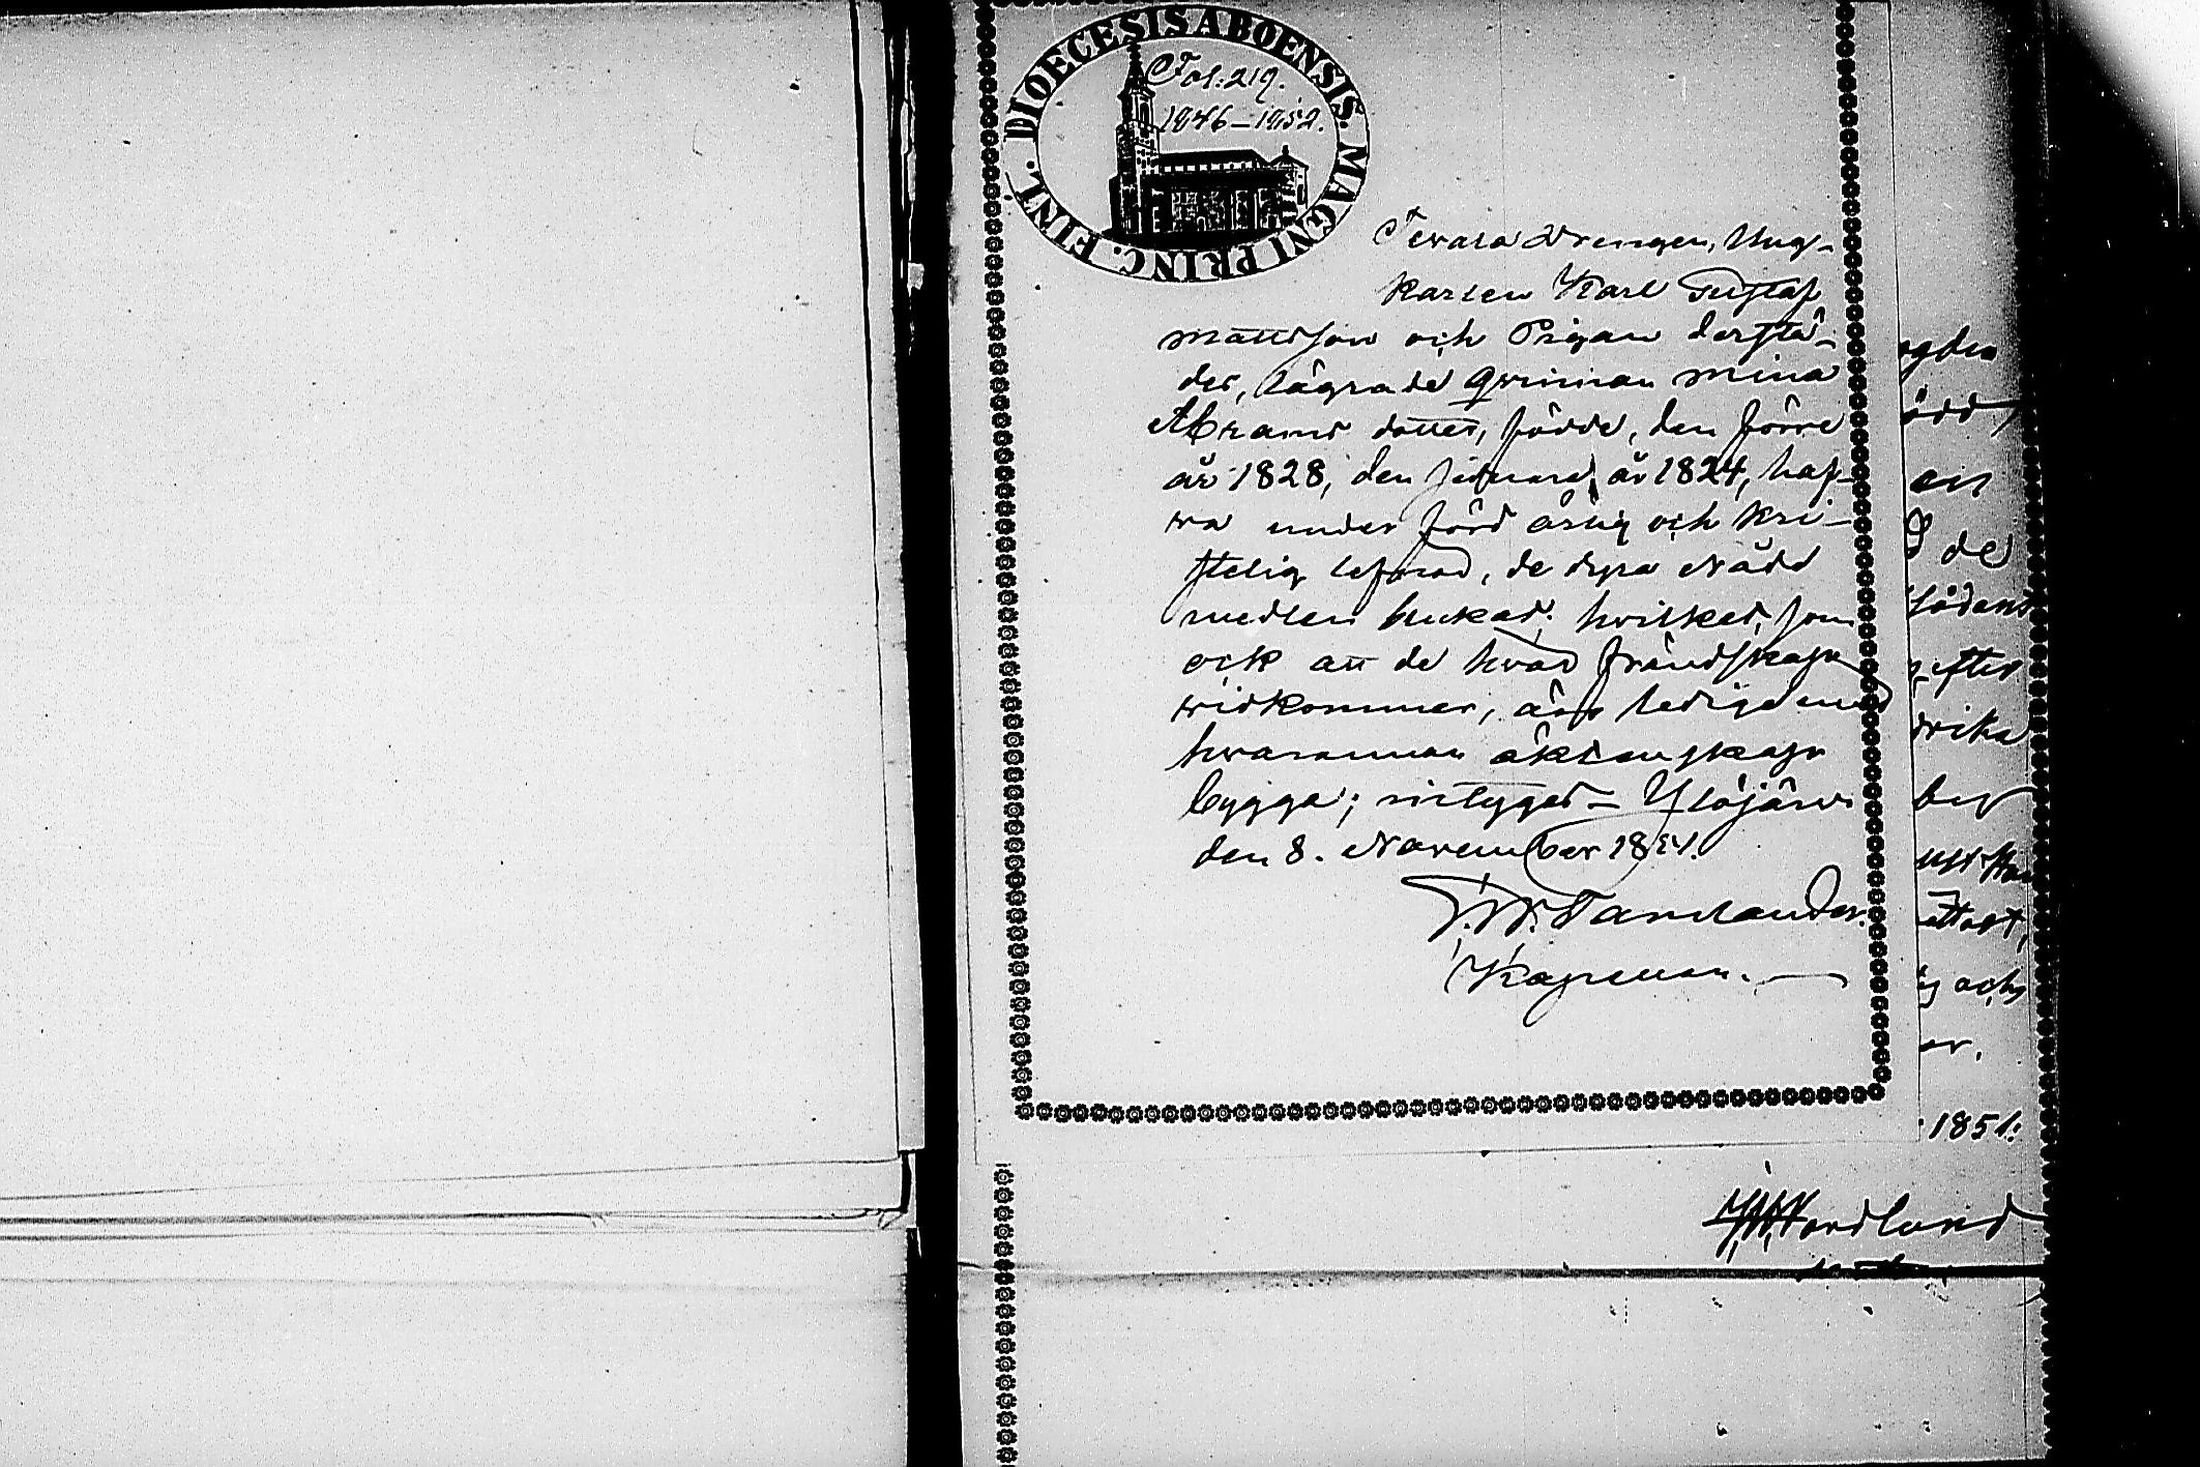 DIOECESIS ABOENSIS. MAGNI PRINC. FINL.
Fol: 219.
1846–1852.
Drengen, Ung-
karlen Karl Gustaf
Mattsson och Pigan derstä-
des, lägrade Qwinnan Mina
Abrams dotter, födde, den förre
år 1828, den sednare år 1824, haf-
wa under förd ärlig och Kri-
stelig lefnad, de dyra Nåds
medlen brukat; hwilket, som
ock att de hwad frändskap
widkommer, äro ledige med
hwarannan äktenskap
bygga; intygas – Ylöjärwi
den 8. November 1851.
Kapellan.
ögden
född,
an
de
födans
efter
drika
bes
attest,
och
or.
1851:
Nordlund